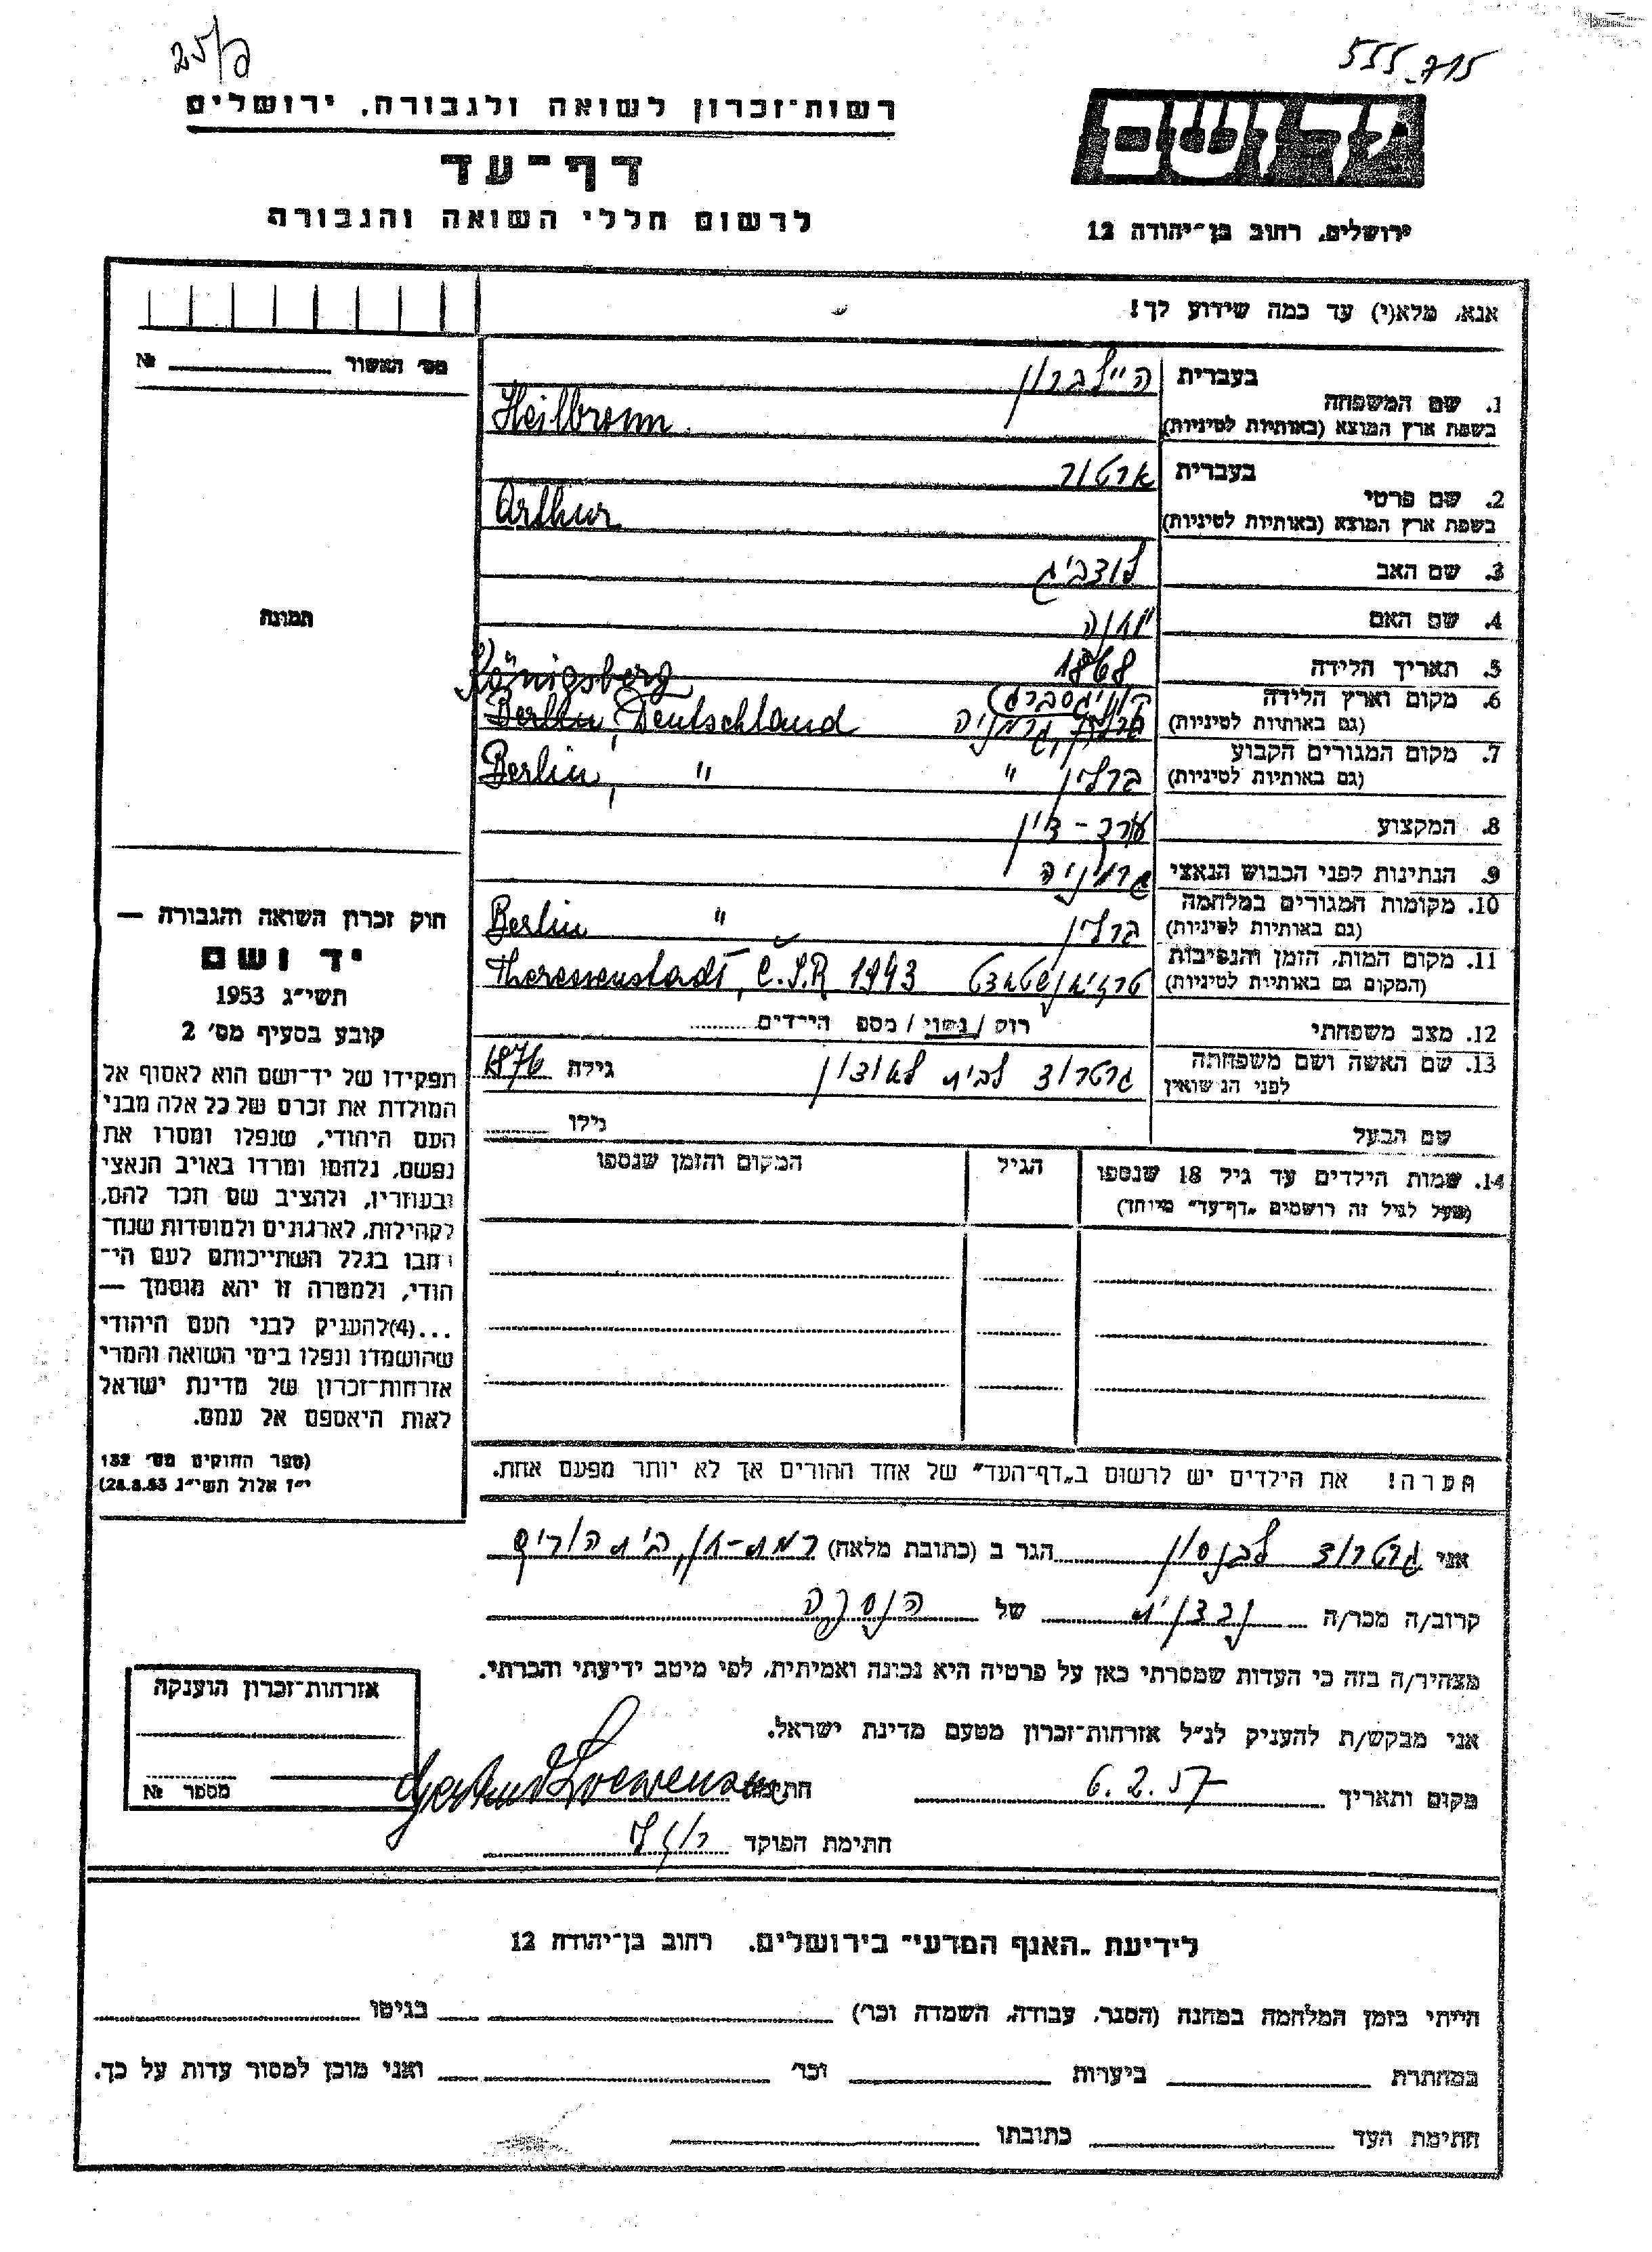 25/פ
555-715
רשות־זכרון לשואה ולגבורה, ירושלים
דף־עד
לרשום חללי השואה והגבורה
יד ושם
ירושלים, רחוב בן־יהודה 12
אנא, מלא(י) עד כמה שידוע לך!
מס׳ האשור № 
1. שם המשפחה בעברית היילברון
בשפת ארץ המוצא (באותיות לטיניות) Heilbronn
2. שם פרטי בעברית ארטור
בשפת ארץ המוצא (באותיות לטיניות) Arthur
3. שם האב לודביג
4. שם האם
5. תאריך הלידה 1868
6. מקום וארץ הלידה קניגסברג Königsberg
(גם באותיות לטיניות) ברלין, גרמניה Berlin, Deutschland
7. מקום המגורים הקבוע
(גם באותיות לטיניות) ברלין " " Berlin,
8. המקצוע עורך-דין
9. הנתינות לפני הכבוש הנאצי גרמניה
10. מקומות המגורים במלחמה
(גם באותיות לטיניות) ברלין " Berlin
11. מקום המות, הזמן והנסיבות
(המקום גם באותיות לטיניות) טרזיאנשטאדט Theresienstadt, C.S.R 1943
12. מצב משפחתי רוק / נשוי / מספ הילדים
13. שם האשה ושם משפחתה גרטרוד לבית גילה 1876
לפני הנשואין
שם הבעל גילו
14. שמות הילדים עד גיל 18 שנספו הגיל המקום והזמן שנספו
(מעל לגיל זה רושמים „דף־עד״ מיוחד)
תמונה
חוק זכרון השואה והגבורה —
יד ושם
תשי״ג 1953
קובע בסעיף מס׳ 2
תפקידו של יד־ושם הוא לאסוף אל
המולדת את זכרם של כל אלה מבני
העם היהודי, שנפלו ומסרו את
נפשם, נלחמו ומרדו באויב הנאצי
ובעוזריו, ולהציב שם וזכר להם,
לקהילות, לארגונים ולמוסדות שנח־
רבו בגלל השתייכותם לעם הי־
הודי, ולמטרה זו יהא מוסמך —
...(4)להעניק לבני העם היהודי
שהושמדו ונפלו בימי השואה והמרי
אזרחות־זכרון של מדינת ישראל
לאות היאספם אל עמם.
(ספר החוקים מס׳ 132
י״ז אלול תשי״ג 28.8.53)
הערה! את הילדים יש לרשום ב„דף־העד״ של אחד ההורים אך לא יותר מפעם אחת.
אני גרטרוד לבנסון הגר ב (כתובת מלאה) רמת-גן, בית הורים
קרוב/ה מכר/ה של הנספה
מצהיר/ה בזה כי העדות שמסרתי כאן על פרטיה היא נכונה ואמיתית, לפי מיטב ידיעתי והכרתי.
אני מבקש/ת להעניק לנ״ל אזרחות־זכרון מטעם מדינת ישראל.
מקום ותאריך 6.2.57 חתימה Gertrud Loewenson
חתימת הפוקד
אזרחות־זכרון הוענקה
מספר №
לידיעת „האגף המדעי״ בירושלים. רחוב בן־יהודה 12
הייתי בזמן המלחמה במחנה (הסגר, עבודה, השמדה וכו׳) בגיטו
במחתרת ביערות וכו׳ ואני מוכן למסור עדות על כך.
חתימת העד כתובתו